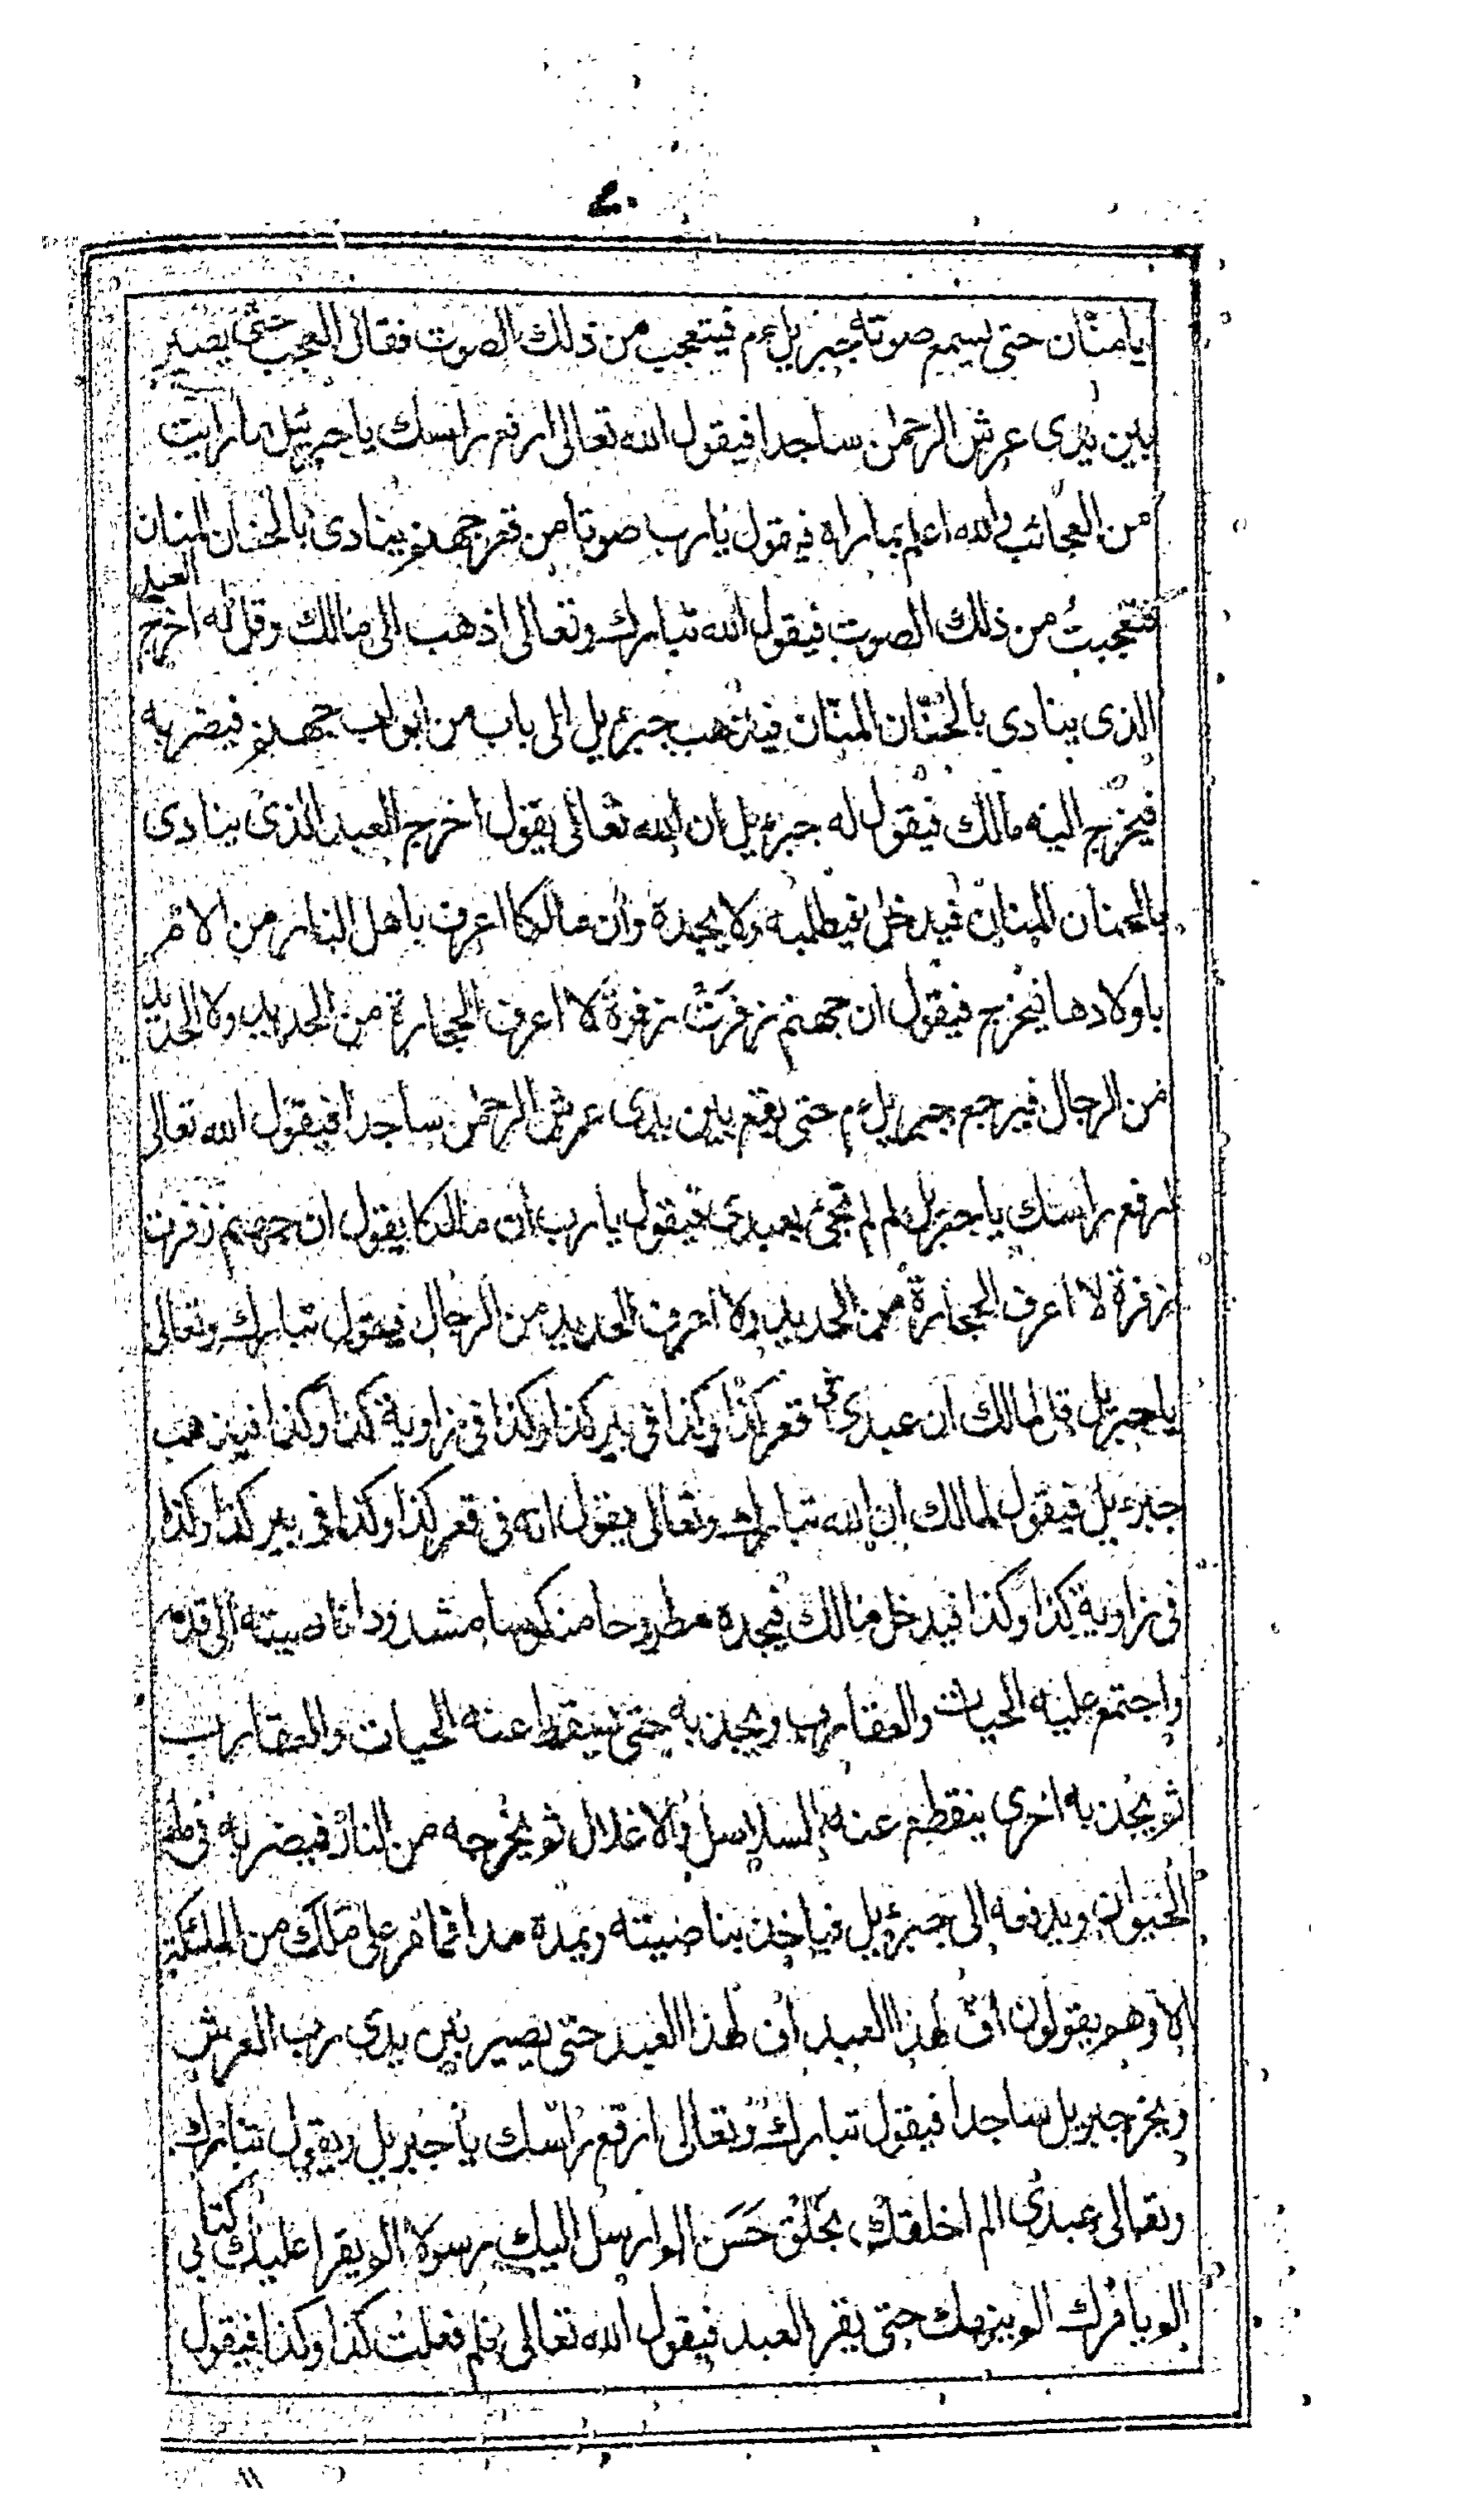 يا منّان حتى يسمع صوته جبريل ءم فيتعجب من ذلك الصوت فقال العجب حتى يصير
بين يدى عرش الرحمٰن ساجدا فيقول الله تعالى ارفع راسك يا جبرئيل ما رايت
من العجائب والله اعلم بما راه فيقول يا رب صوتا من قعر جهنم ينادى بالحنان المنان
فتعجبتُ من ذلك الصوت فيقول الله تبارك وتعالى اذهب الى مالك وقل له اخرج العبد
الذى ينادى بالحنّان المنّان فيذهب جبرءيل الى باب من ابواب جهنم فيضربه
فيخرج اليه مالك فيقول له جبرءيل ان الله تعالى يقول اخرج العبد الذى ينادى
بالحنان المنان فيدخل فيطلبه ولا يجده وان مالكا اعرف باهل النار من الام
باولادها فيخرج فيقول ان جهنم زفرَتْ زفرةً لا اعرف الحجارة من الحديد ولا الحديد
من الرجال فيرجع جبريل ءم حتى يقع بين يدى عرش الرحمٰن ساجدا فيقول الله تعالى
ارفع راسك يا جبريل لم لم تجئ بعبدى فيقول يا رب ان مالكا يقول ان جهنم زفرت
زفرة لا اعرف الحجارة من الحديد ولا اعرف الحديد من الرجال فيقول تبارك وتعالى
يا جبريل قل لمالك ان عبدى فى قعر كذا وكذا فى بير كذا وكذا فى زاوية كذا وكذا فيذهب
جبرءيل فيقول لمالك ان الله تبارك وتعالى يقول انه فى قعر كذا وكذا فى بير كذا وكذا
فى زاوية كذا وكذا فيدخل مالك فيجده مطروحا منكوسا مشدودا ناصيته الى قدمه
واجتمع عليه الحيات والعقارب ويجذبه حتى تسقط عنه الحيات والعقارب
ثم يجذبه اخرى ينقطع عنه السلاسل والاغلال ثم يخرجه من النار فيضربه فى ماء
الحيوان ويدفعه الى جبرءيل فياخذ بناصيته ويمده مدا فما مر على مَلَك من الملئكة
الا وهم يقولون اُفّ لهذا العبد اف لهذا العبد حتى يصير بين يدى رب العرش
ويخر جبريل ساجدا فيقول تبارك وتعالى ارفع راسك يا جبريل ويقول تبارك
وتعالى عبدى الم اخلقك بخَلْق حَسَن الم ارسل اليك رسولا الم يقرا عليك كتابى
الم يامرك الم ينهك حتى يقر العبد فيقول الله تعالى فلم فعلت كذا وكذا فيقول